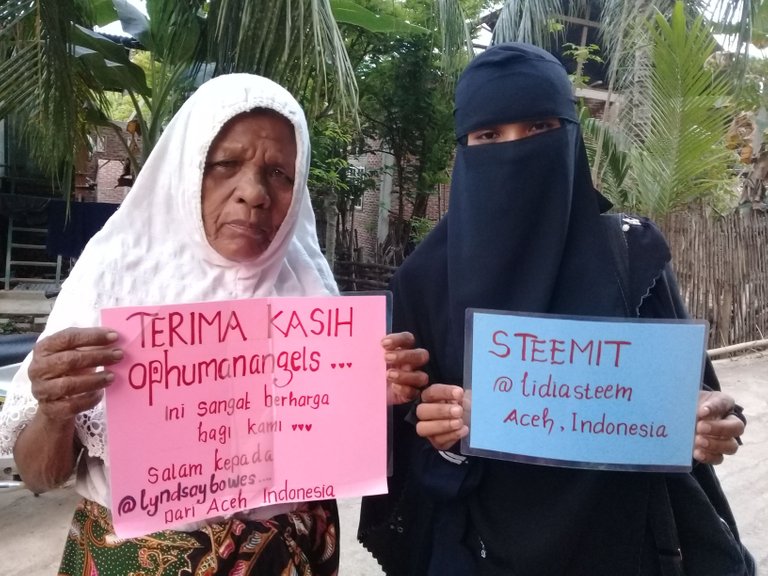 TERIMA KASIH
Ophumanangels...♥♥♥
Ini sangat berharga
bagi kami ♥♥♥
Salam kepada
@lyndsaybowes....
Dari Aceh Indonesia
STEEMIT
@lidiasteem
Aceh, Indonesia